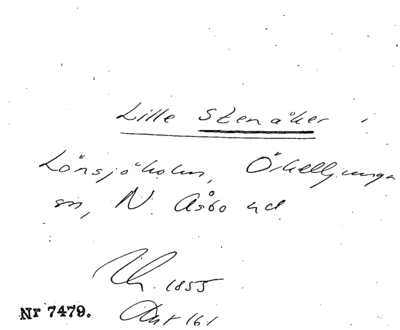 Lille Stenåker i
Lönsjöholm, Örkelljunga
sn, N. Åsbo hd
1855
Nr 7479. Akt 161